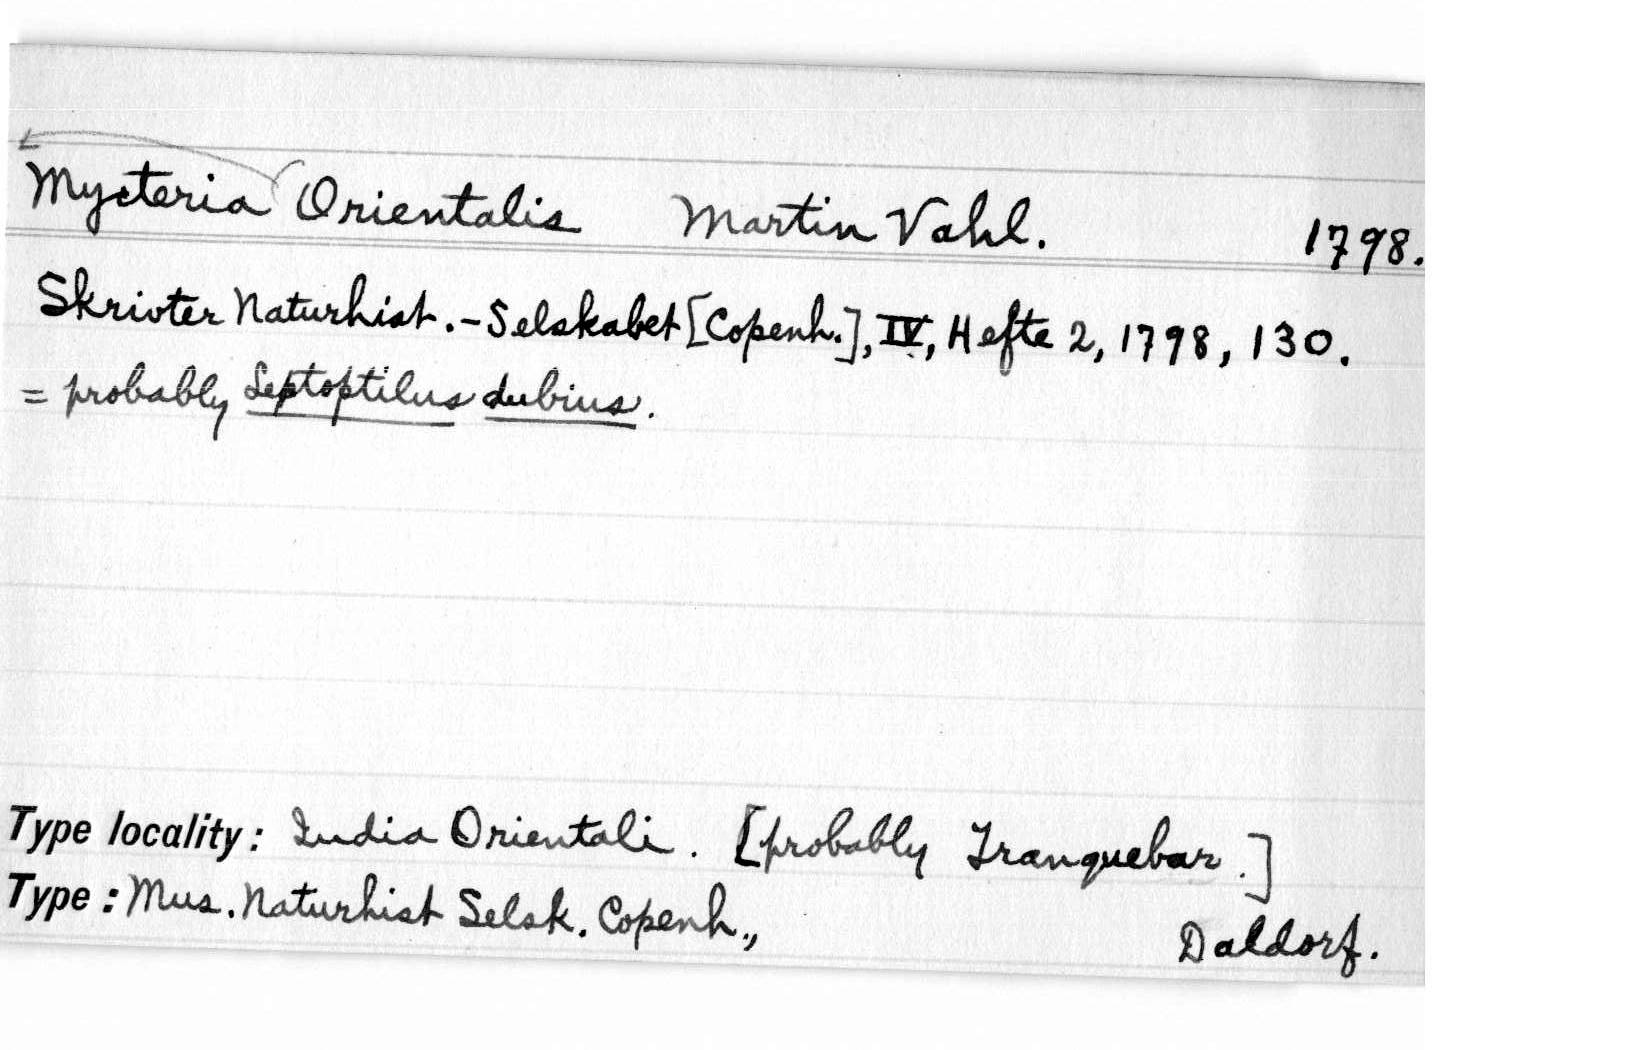 Mycteria Orientalis Martin Vahl. 1798.
Skrivter Naturhist.-Selskabet [Copenh.], IV, Hefte 2, 1798, 130.
= probably Leptoptilus dubius.
Type locality: India Orientali. [probably Tranquebar.]
Type: Mus. Naturhist Selsk. Copenh.,
Daldorf.